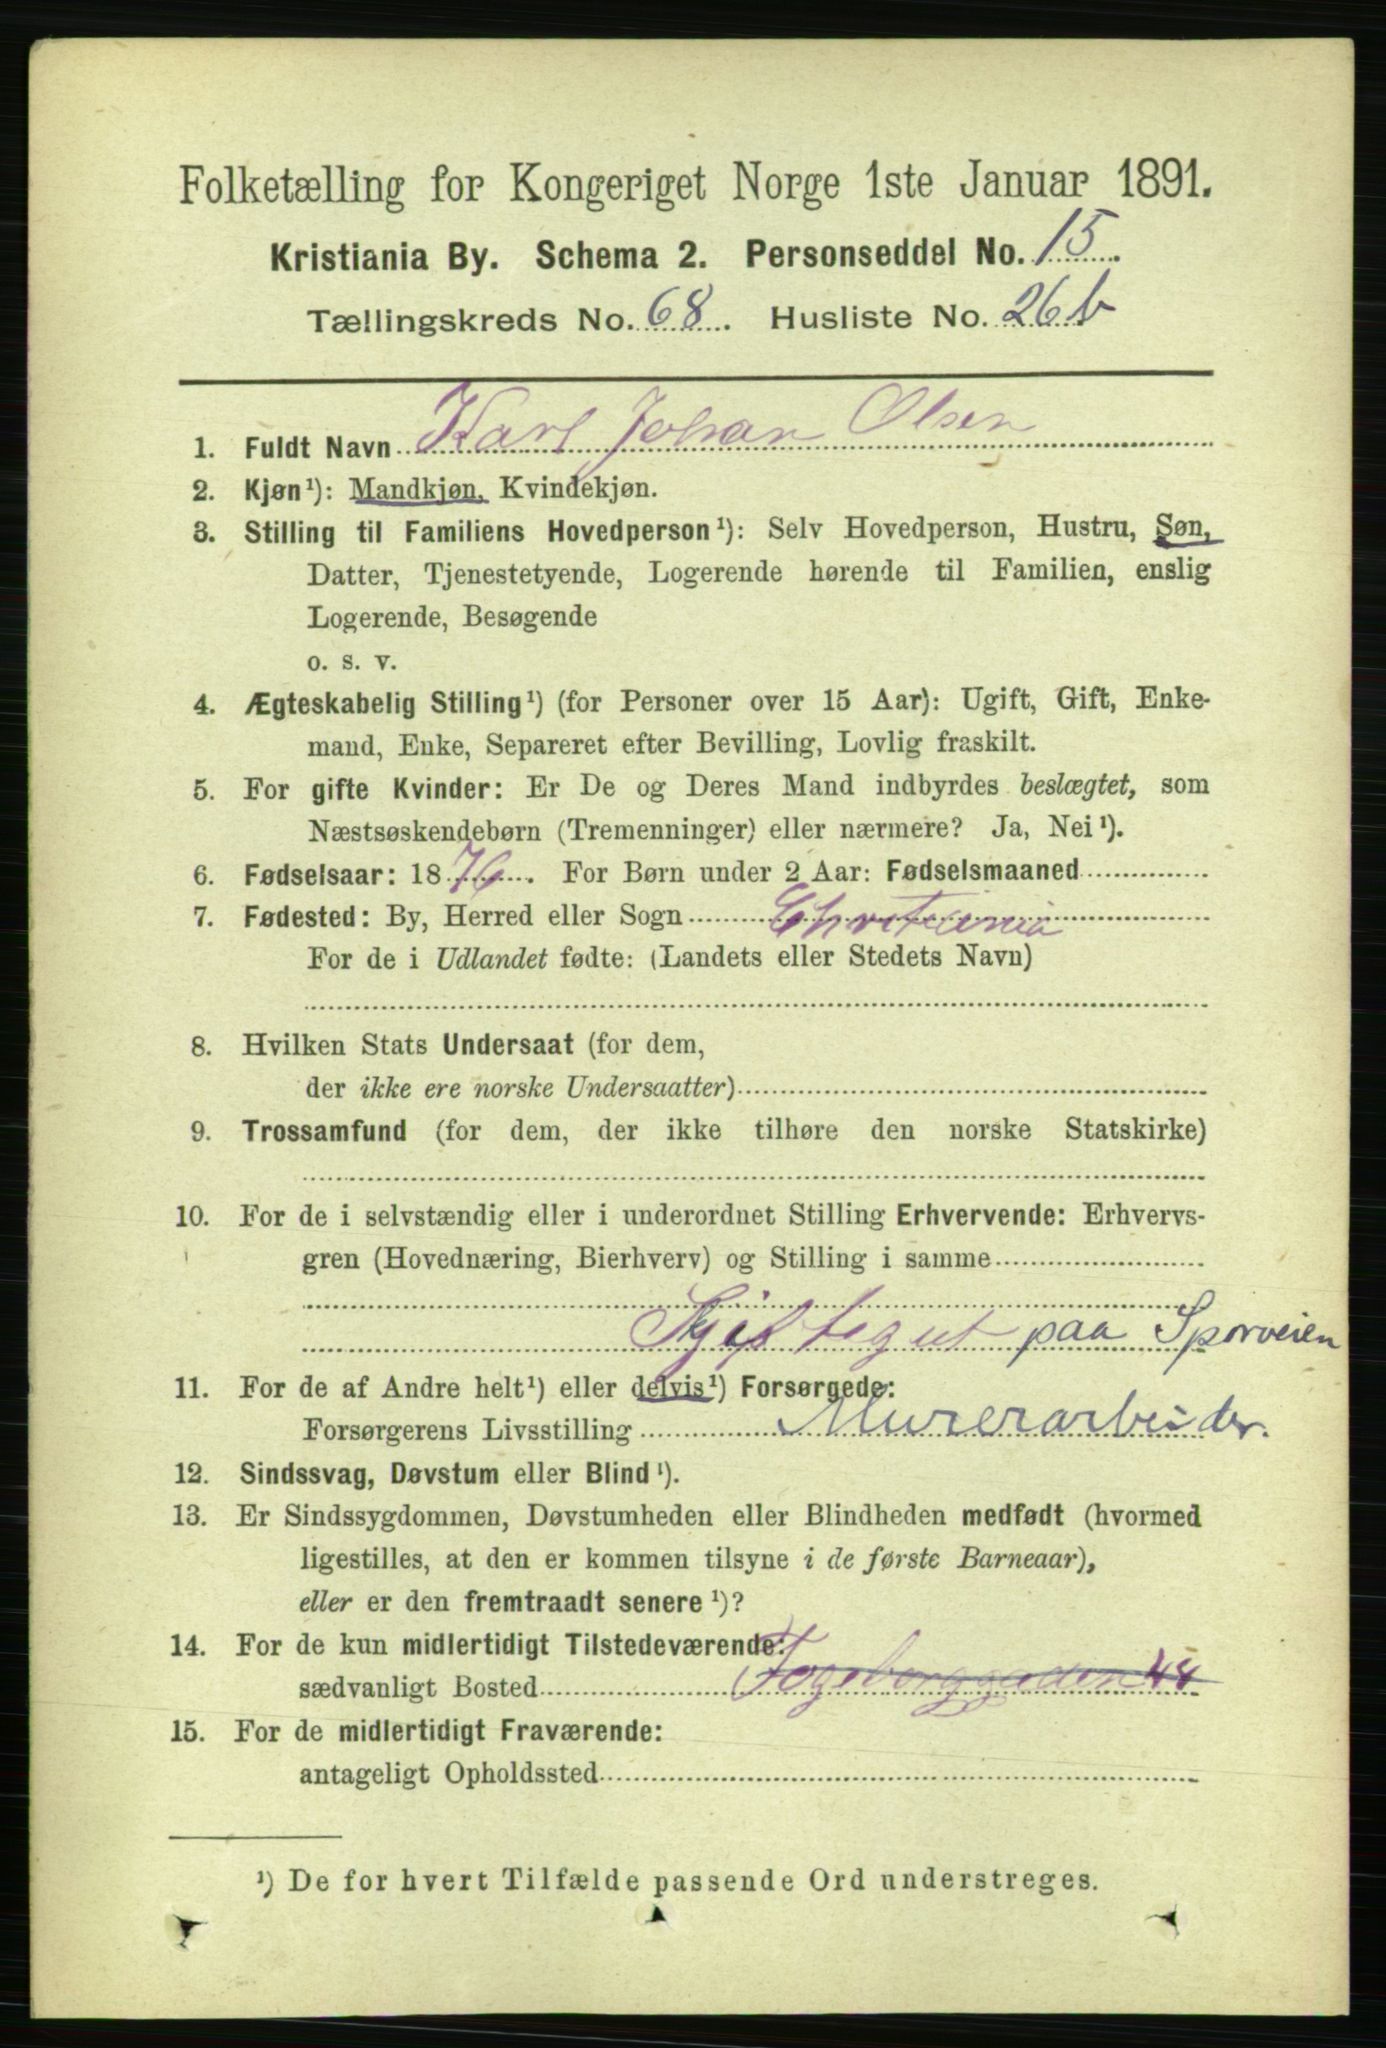 Folketælling for Kongeriget Norge 1ste Januar 1891.
Kristiania By. Schema 2. Personseddel No. 15.
Tællingskreds No. 68. Husliste No. 26b
1. Fuldt Navn Karl Johan Olsen
2. Kjøn¹): Mandkjøn, Kvindekjøn.
3. Stilling til Familiens Hovedperson¹): Selv Hovedperson, Hustru, Søn,
Datter, Tjenestetyende, Logerende hørende til Familien, enslig
Logerende, Besøgende
o. s. v.
4. Ægteskabelig Stilling¹) (for Personer over 15 Aar): Ugift, Gift, Enke-
mand, Enke, Separeret efter Bevilling, Lovlig fraskilt.
5. For gifte Kvinder: Er De og Deres Mand indbyrdes beslægtet, som
Næstsøskendebørn (Tremenninger) eller nærmere? Ja, Nei¹).
6. Fødselsaar: 1876. For Børn under 2 Aar: Fødselsmaaned
7. Fødested: By, Herred eller Sogn Christiania
For de i Udlandet fødte: (Landets eller Stedets Navn)
8. Hvilken Stats Undersaat (for dem,
der ikke ere norske Undersaatter)
9. Trossamfund (for dem, der ikke tilhøre den norske Statskirke)
10. For de i selvstændig eller i underordnet Stilling Erhvervende: Erhvervs-
gren (Hovednæring, Bierhverv) og Stilling i samme
paa Sporveien
11. For de af Andre helt¹) eller delvis¹) Forsørgede:
Forsørgerens Livsstilling Murerarbeider.
12. Sindssvag, Døvstum eller Blind¹).
13. Er Sindssygdommen, Døvstumheden eller Blindheden medfødt (hvormed
ligestilles, at den er kommen tilsyne i de første Barneaar),
eller er den fremtraadt senere¹)?
14. For de kun midlertidigt Tilstedeværende:
sædvanligt Bosted 44
15. For de midlertidigt Fraværende:
antageligt Opholdssted
¹) De for hvert Tilfælde passende Ord understreges.